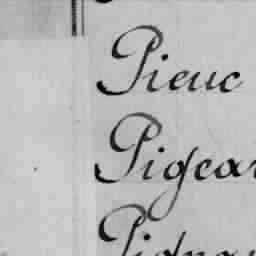 Pieuc
Pigear